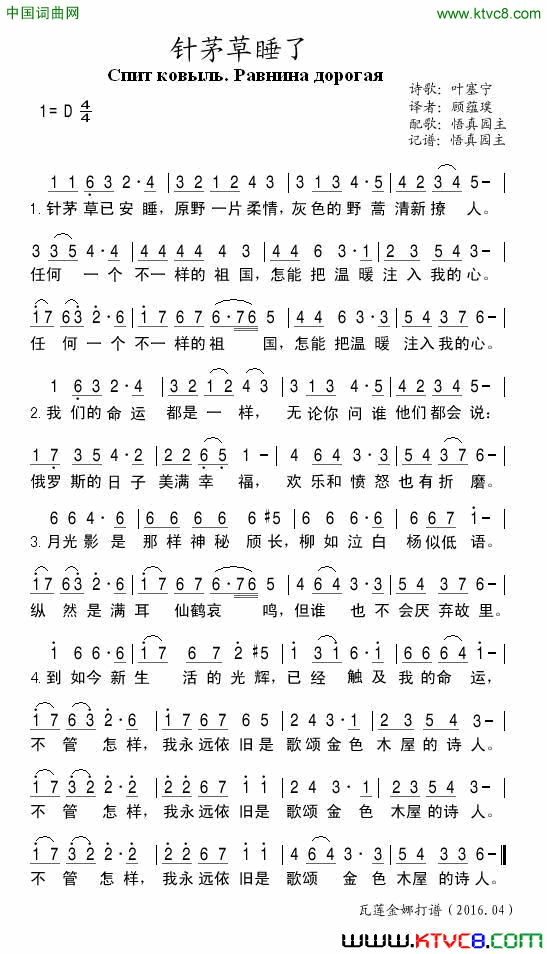 中国词曲网
www.ktvc8.com
针茅草睡了
Спит ковыль. Равнина дорогая
诗歌：叶塞宁
译者：顾蕴璞
配歌：悟真园主
记谱：悟真园主
1= D 4/4
1 1 6 3 2·4 | 3 2 1 2 4 3 | 3 1 3 4·5 | 4 2 3 4 5- |
1.针茅草已安睡，原野一片柔情，灰色的野蒿清新撩人。
3 3 5 4·4 | 4 4 4 4 5 4 | 4 4 6 3·1 | 2 3 5 4 3- |
任何一个不一样的祖国，怎能把温暖注入我的心。
1 7 6 3 2·6 | 1 7 6 7 6·7 6 5 | 4 4 6 3·3 | 5 4 3 7 6- |
任何一个不一样的祖国，怎能把温暖注入我的心。
1 6 3 2·4 | 3 2 1 2 4 3 | 3 1 3 4·5 | 4 2 3 4 5- |
2.我们的命运都是一样，无论你问谁他们都会说：
1 7 3 5·4 | 2 2 6 5 1- | 4 6 4 3·3 | 5 4 3 7 6- |
俄罗斯的日子美满幸福，欢乐和愤怒也有折磨。
6 6 4·6 | 6 6 6 6 6 #5 | 6 6 6 6·6 | 6 6 7 1- |
3.月光影是那样神秘颀长，柳如泣白杨似低语。
1 7 6 3 2·6 | 1 7 6 7 6·7 6 5 | 4 6 4 3·3 | 5 4 3 7 6- |
纵然是满耳仙鹤哀鸣，但谁也不会厌弃故里。
1 6 6 6·6 | 1 7 6 7 2 #5 | 1 3 1 6·1 | 1 3 4 3 1- |
4.到如今新生活的光辉，已经触及我的命运，
1 7 6 3 2·6 | 1 7 6 7 6 5 | 2 4 3·1 | 2 3 5 4 3- |
不管怎样，我永远依旧是歌颂金色木屋的诗人。
1 7 3 2 2·2 | 2 2 6 7 1 1 | 1 2 4 3·1 | 2 3 5 4 3- |
不管怎样，我永远依旧是歌颂金色木屋的诗人。
1 7 3 2 2·2 | 2 2 6 7 1 1 | 4 6 4 3·3 | 3 3 3 7 6- ‖
不管怎样，我永远依旧是歌颂金色木屋的诗人。
瓦莲金娜打谱（2016.04）
www.KTVC8.com